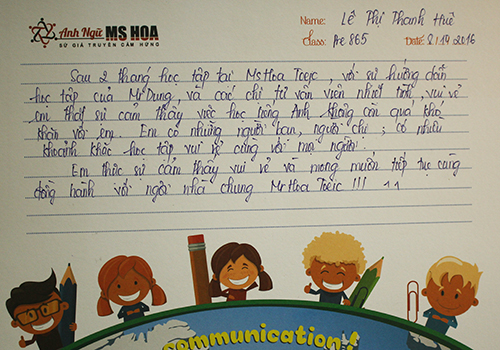 Anh Ngữ MS HOA
SỨ GIẢ TRUYỀN CẢM HỨNG
Name: Lê Thị Thanh Huế
Class: Pre 865
Date: 8/10/2016
Sau 2 tháng học tập tại Ms Hoa Toeic, với sự hướng dẫn
học tập của Mr Dung, và các chị tư vấn viên nhiệt tình, vui vẻ
em thật sự cảm thấy việc học tiếng Anh không còn quá khó
khăn với em. Em có những người bạn, người chị; có nhiều
khoảnh khắc học tập vui vẻ cùng với mọi người.
Em thực sự cảm thấy vui vẻ và mong muốn tiếp tục cùng
đồng hành với ngôi nhà chung Ms Hoa Toeic !!! ^^
communication